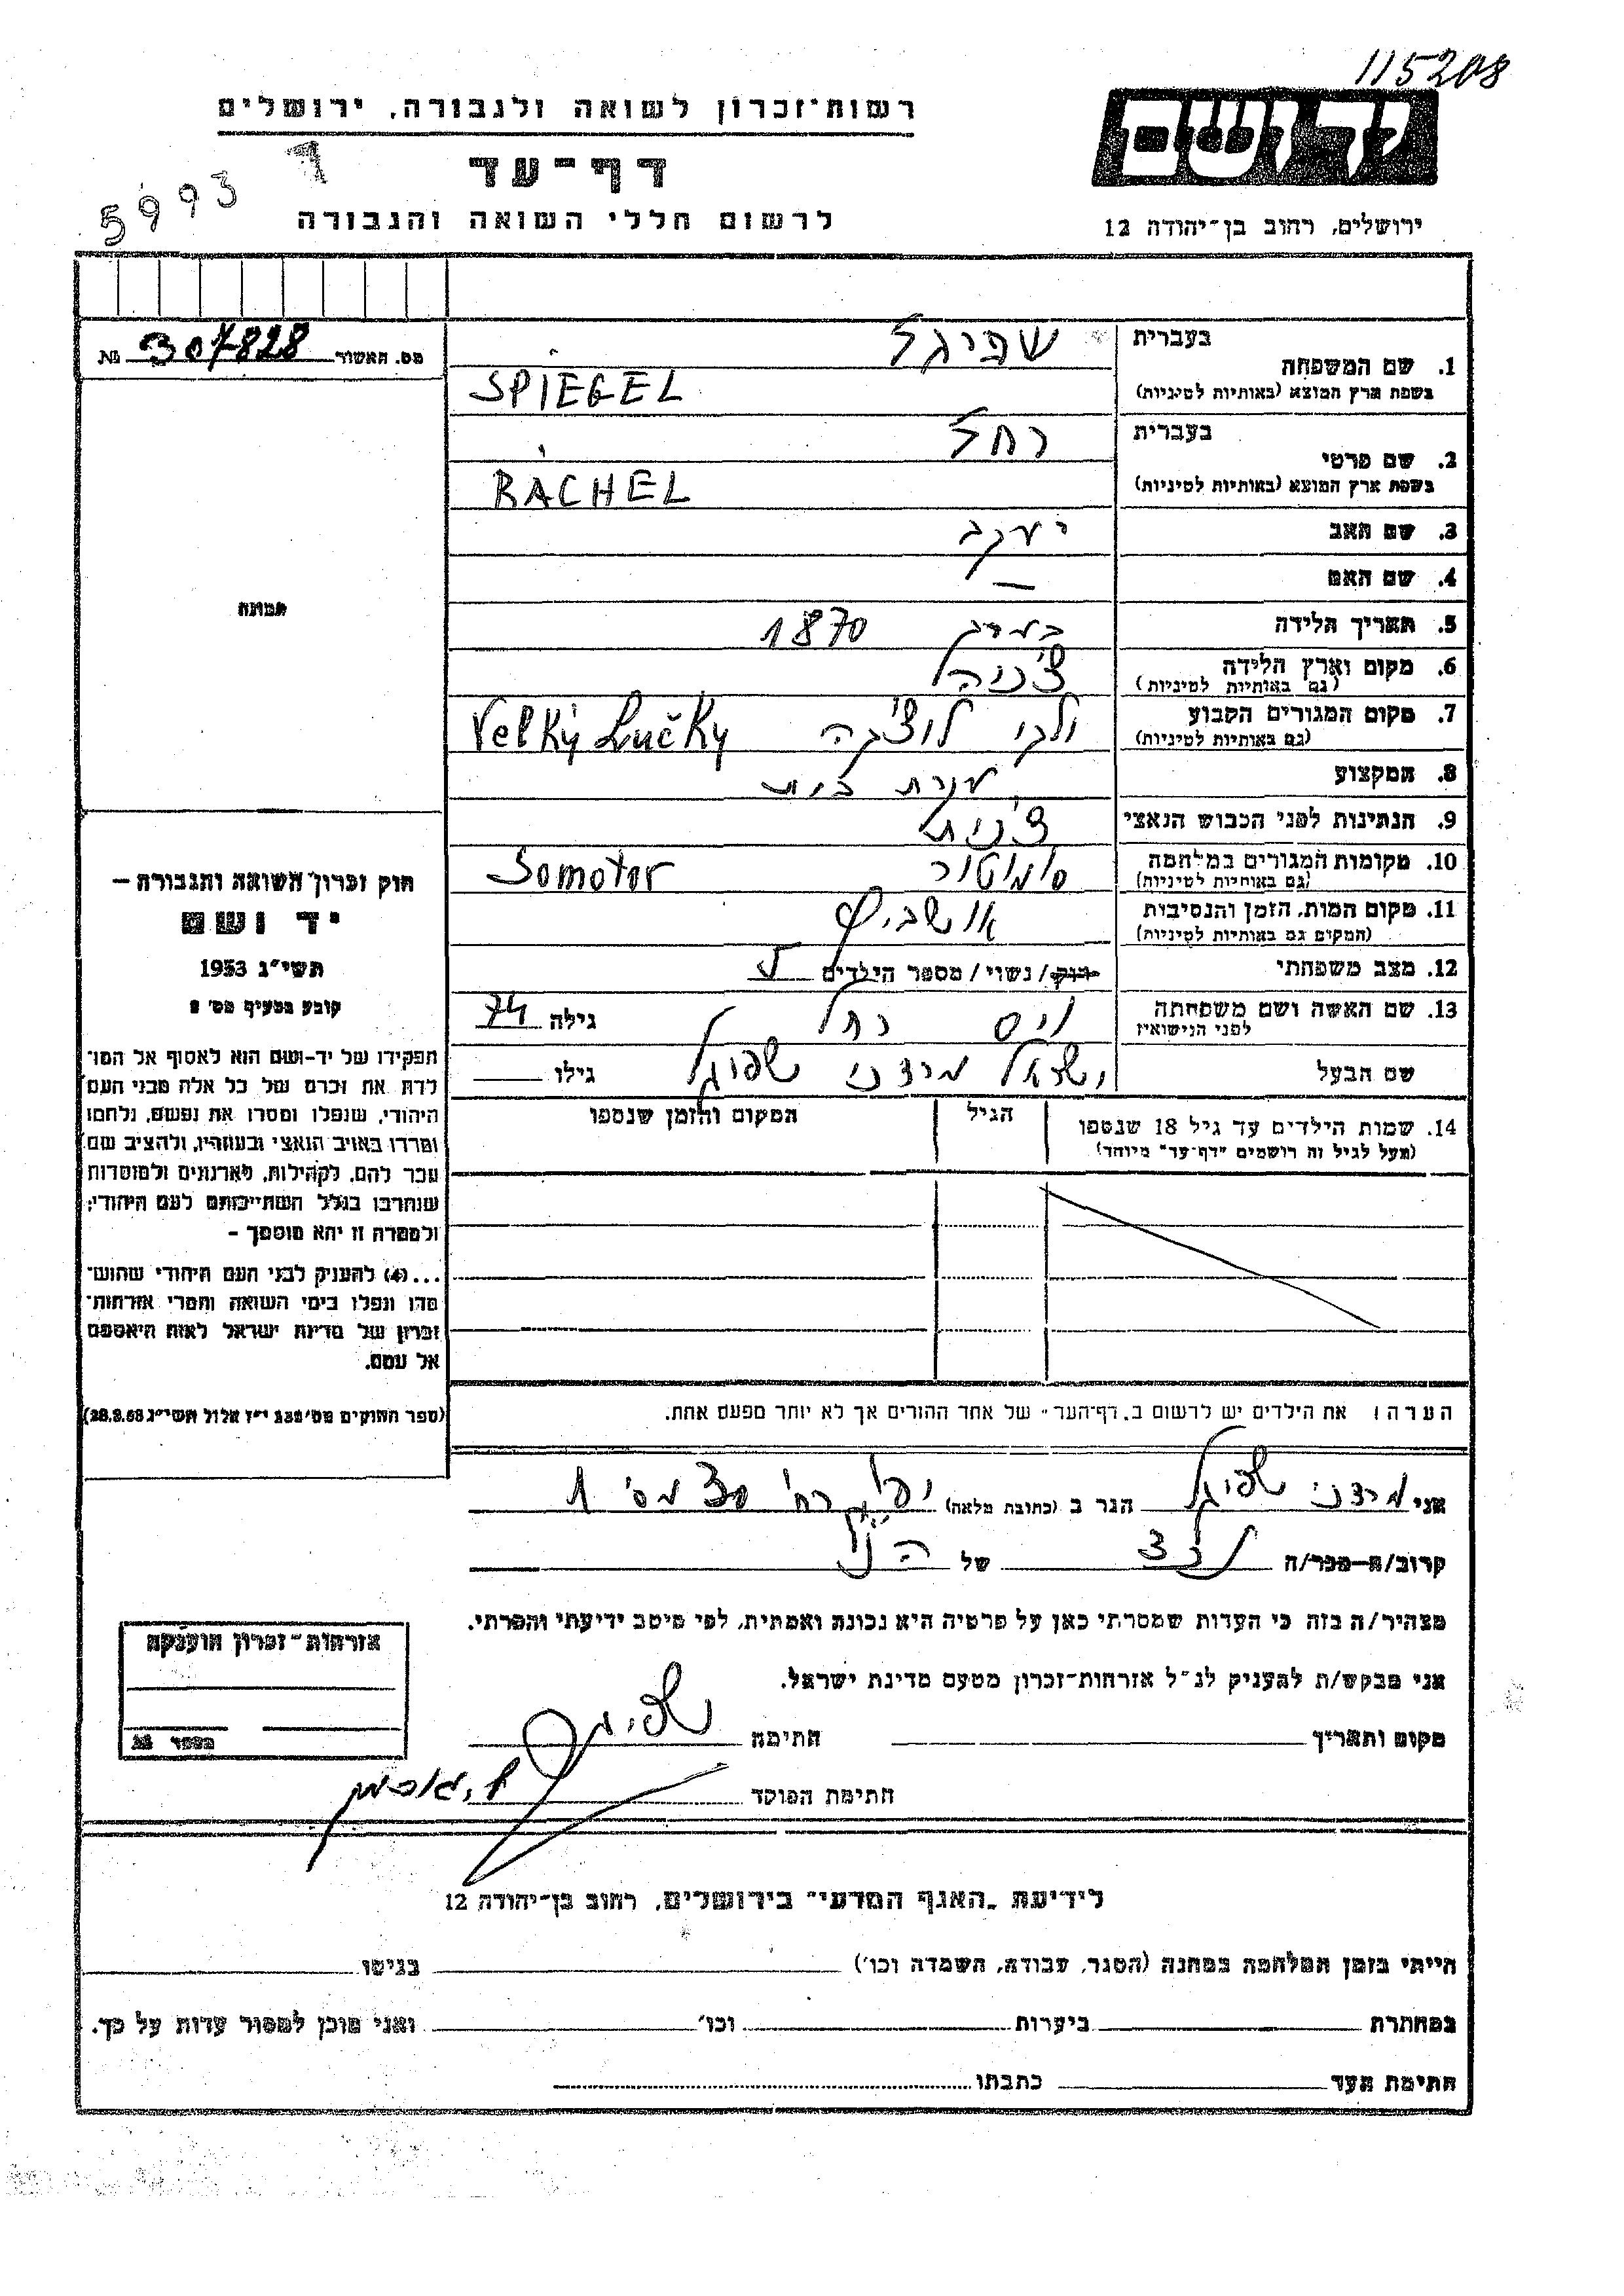 115208
רשות-זכרון לשואה ולגבורה, ירושלים
יד ושם
דף-עד
5993 7
לרשום חללי השואה והגבורה
ירושלים, רחוב בן-יהודה 12
מס. האשור 307828 №
1. שם המשפחה
בעברית שפיגל
בשפת ארץ המוצא (באותיות לטיניות) SPIEGEL
2. שם פרטי
בעברית רחל
בשפת ארץ המוצא (באותיות לטיניות) RACHEL
3. שם האב יעקב
4. שם האם —
5. תאריך הלידה 1870
6. מקום וארץ הלידה
(גם באותיות לטיניות)
7. מקום המגורים הקבוע ולקי לוצ'קה Velky Lučky
(גם באותיות לטיניות)
8. המקצוע עקרת בית
9. הנתינות לפני הכבוש הנאצי
10. מקומות המגורים במלחמה סומוטור Somotor
(גם באותיות לטיניות)
11. מקום המות, הזמן והנסיבות אושביץ
(המקום גם באותיות לטיניות)
12. מצב משפחתי רווק / נשוי / מספר הילדים 5
13. שם האשה ושם משפחתה
לפני הנישואין וייס רחל גילה 74
שם הבעל ישראל מרדכי שפיגל גילו
14. שמות הילדים עד גיל 18 שנספו
(מעל לגיל זה רושמים "דף-עד" מיוחד)
הגיל
המקום והזמן שנספו
תמונה
חוק זכרון השואה והגבורה –
יד ושם
תשי"ג 1953
קובע בסעיף מס' 2
תפקידו של יד-ושם הוא לאסוף אל המו־
לדת את זכרם של כל אלה מבני העם
היהודי, שנפלו ומסרו את נפשם, נלחמו
ומרדו באויב הנאצי ובעוזריו, ולהציב שם
וזכר להם, לקהילות, לארגונים ולמוסדות
שנחרבו בגלל השתייכותם לעם היהודי;
ולמטרה זו יהא מוסמך –
...(4) להעניק לבני העם היהודי שהוש־
מדו ונפלו בימי השואה והמרי אזרחות־
זכרון של מדינת ישראל לאות היאספם
אל עמם.
(ספר החוקים מס' 132 י"ז אלול תשי"ג 28.8.53)
הערה: את הילדים יש לרשום ב"דף-העד" של אחד ההורים אך לא יותר מפעם אחת.
אני מרדכי שפיגל הגר ב (כתובת מלאה) רח' מס' 1
קרוב/ה-מכר/ה נכד של הנ"ל
מצהיר/ה בזה כי העדות שמסרתי כאן על פרטיה היא נכונה ואמתית, לפי מיטב ידיעתי והכרתי.
אני מבקש/ת להעניק לנ"ל אזרחות-זכרון מטעם מדינת ישראל.
מקום ותאריך חתימה שפיגל
חתימת הפוקד
אזרחות-זכרון הוענקה
מספר №
לידיעת "האגף המדעי" בירושלים, רחוב בן-יהודה 12
הייתי בזמן המלחמה במחנה (הסגר, עבודה, השמדה וכו') בגיטו
במחתרת ביערות וכו' ואני מוכן למסור עדות על כך.
חתימת העד כתבתו